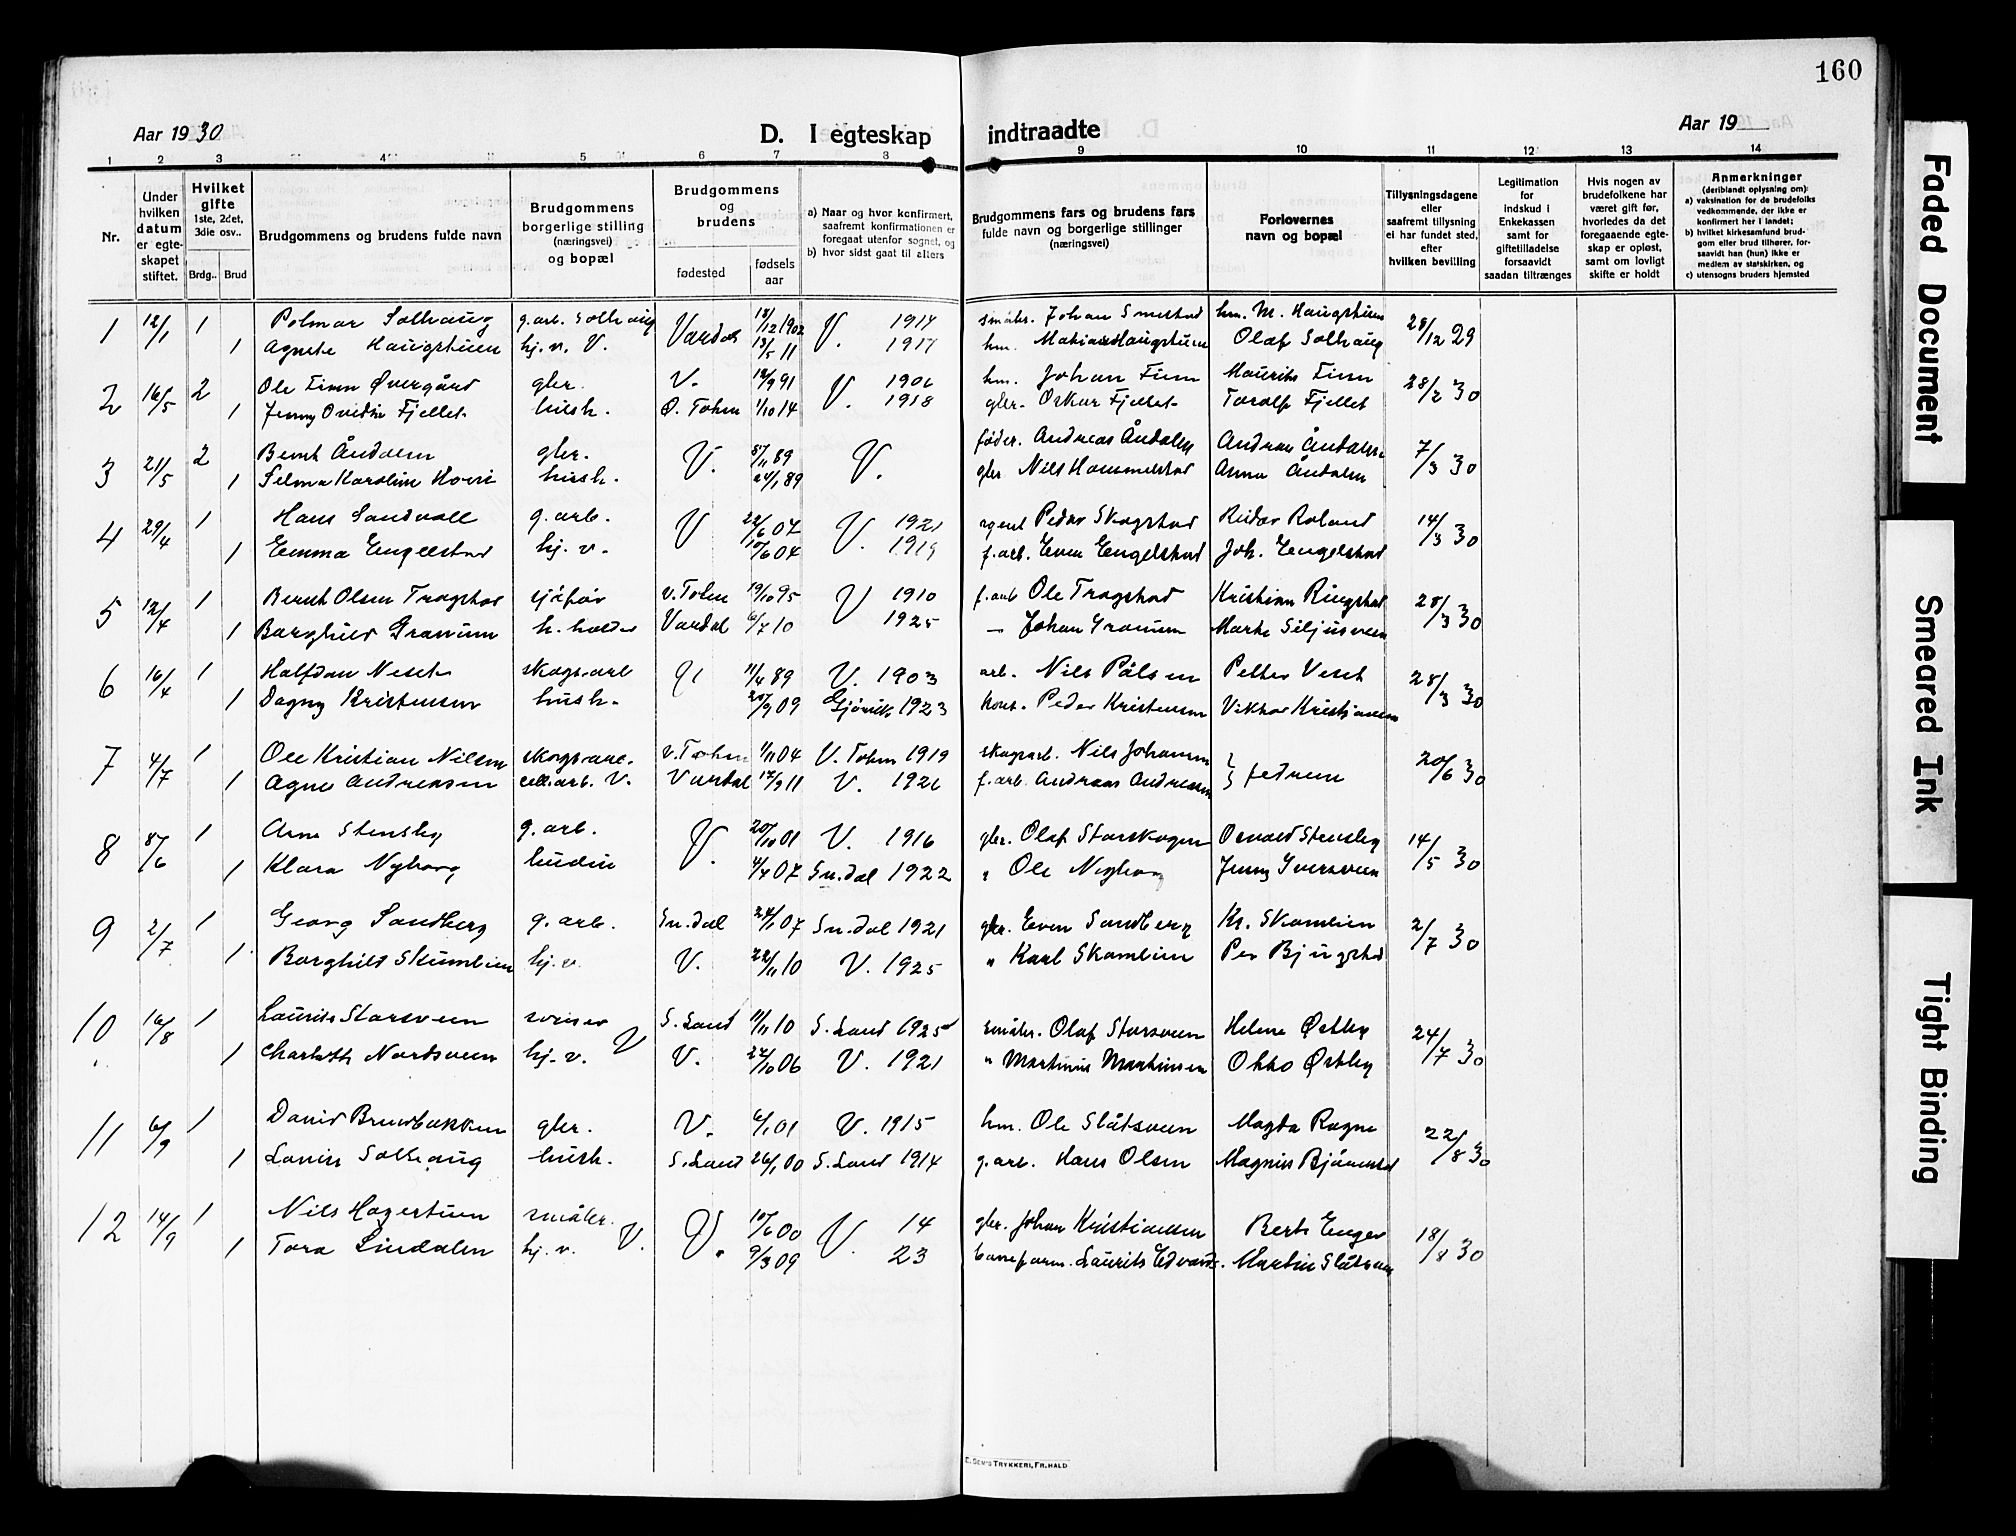 160
Aar 1930
D. I egteskap indtraadte
Aar 19
1 2 3 4 5 6 7 8 9 10 11 12 13 14
Nr.
Under hvilken datum er egteskapet stiftet.
Hvilket gifte 1ste, 2det, 3die osv..
Brdg.. Brud
Brudgommens og brudens fulde navn
Brudgommens borgerlige stilling (næringsvei) og bopæl
Brudgommens og brudens
fødested
fødsels aar
a) Naar og hvor konfirmert, saafremt konfirmationen er foregaat utenfor sognet, og
b) hvor sidst gaat til alters
Brudgommens fars og brudens fars fulde navn og borgerlige stillinger (næringsvei)
Forlovernes navn og bopæl
Tillysningsdagene eller saafremt tillysning ei har fundet sted, efter hvilken bevilling
Legitimation for indskud i Enkekassen samt for giftetilladelse forsaavidt saadan tiltrænges
Hvis nogen av brudefolkene har været gift før, hvorledes da det foregaaende egteskap er opløst, samt om lovligt skifte er holdt
Anmerkninger
(deriblandt oplysning om):
a) vaksination for de brudefolks vedkommende, der ikke er konfirmert her i landet;
b) hvilket kirkesamfund brudgom eller brud tilhører, forsaavidt han (hun) ikke er medlem av statskirken, og
c) utensogns bruders hjemsted
1 12/1 1 Solhaug g.arb. Solhaug Vardal 18/12 1902 V. 1917 småbr. Johan hm. M. Haugstuen 28/12 29
1 Agnete Haugstuen hj.v. V. 13/5 11 hm. Olaf Solhaug
2 16/5 2 Ole Finn Øvergård gbr. V. 12/9 91 V. 1906 hm. Johan Finn Maurits Finn 28/2 30
1 Jenny Ovidia Fjellet hush. Ø. Toten 1/10 14 1918 gbr. Oskar Fjellet Torolf Fjellet
3 21/5 2 Bernt Åndalen gbr. V. 89 V. føder. Andreas Åndalen Andreas Åndalen 7/3 30
1 Selma Karoline Hovie hush. 24/1 89 gbr Nils Hammerstad Anna Åndalen
4 29/4 1 Hans Sandvoll g.arb. V 22/6 07 V. 1921 agent Peder Skogstad Reidar Roland 14/3 30
1 Emma Engelstad hj.v. 10/6 04 1919 f.arb. Even Engelstad Joh. Engelstad
5 12/4 1 Bernt Olsen Tragstad sjåfør v. Toten 19/10 95 V 1910 f.arb Ole Tragstad Kristian Ringstad 28/3 30
1 Borghild Granum h.holder Vardal 6/7 10 1925 – Johan Granum Marte Siljusveen
6 16/4 1 Halfdan skogsarb V 11/4 89 V. 1903 arb. Nils Pålsen Petter 28/3 30
1 Dagny Kristensen hush. 09 Gjøvik 1923 Peder Kristensen Viktor Kristiansen
7 4/7 1 Ole Kristian Nilsen skogsarb. v. Toten 1/11 04 V. Toten 1919 skogsarb. Nils Johansen } fedrene 20/6 30
1 Agne Andreasen cell.arb. V. Vardal 12/9 11 V. 1926 f.arb. Andreas Andreasen
8 /6 1 Arne Stensby g.arb. V. 20/10 01 V. 1916 gbr. Olaf Storskogen Osvald Stensby 14/5 30
1 Klara Nyborg 4/4 07 Sn.dal 1922 " Ole Nyborg Jenny Iversveen
9 2/7 1 Georg Sandberg g.arb. Sn.dal 24/1 07 Sn.dal 1921 gbr. Even Sandberg Kr. Skamlien 2/7 30
1 Borghild Skumlien hj.v. V. 22/11 10 V. 1925 " Karl Skamlien Per Bjugstad
10 16/8 1 Laurits Storsveen S. Land 11/11 10 S. Land 1925 småbr. Olaf Storsveen Helene Østby 24/7 30
1 Charlotte Nordsveen hj.v. V V. 22/10 06 V. 1921 " Martinus Martinsen Otto Østby
11 6/9 1 David Brubakken gbr. V. 6/1 01 V. 1915 hm. Ole Slåtsveen Magda Rogne 22/8 30
1 Lovise Solhaug hush. S. Land 26/1 00 S. Land 1914 g.arb. Hans Olsen Magnus
12 14/9 1 Nils Hagestuen småbr. V. V. 10/6 00 V. 14 gbr. Johan Kristiansen Berte Enger 18/8 30
1 Tora Lindalen hj.v. 9/3 09 23 baneform. Laurits Edvards. Martin Slåtsveen
E. SEM'S TRYKKERI, FR.HALD
Faded Document
Smeared Ink
Tight Binding